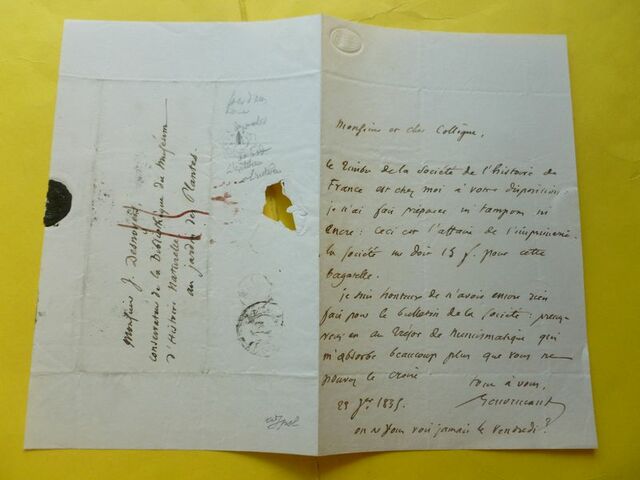 Monsieur J. Desnoyers
Conservateur de la Bibliothèque du Muséum
d'Histoire Naturelle
au jardin des Plantes.
Monsieur et cher Collègue,
le timbre de la Société de l'histoire de
France est chez moi à votre disposition
je n'ai fait préparer ni tampon ni
encre : ceci est l'affaire de l'imprimerie.
la Société me doit 15 f. pour cette
bagatelle.
je suis honteux de n'avoir encore rien
fait pour le bulletin de la Société : prenez
vous en au trésor de numismatique qui
m'absorbe beaucoup plus que vous ne
pouvez le croire
tout à vous,
1835.
on ne vous voit jamais le vendredi ?